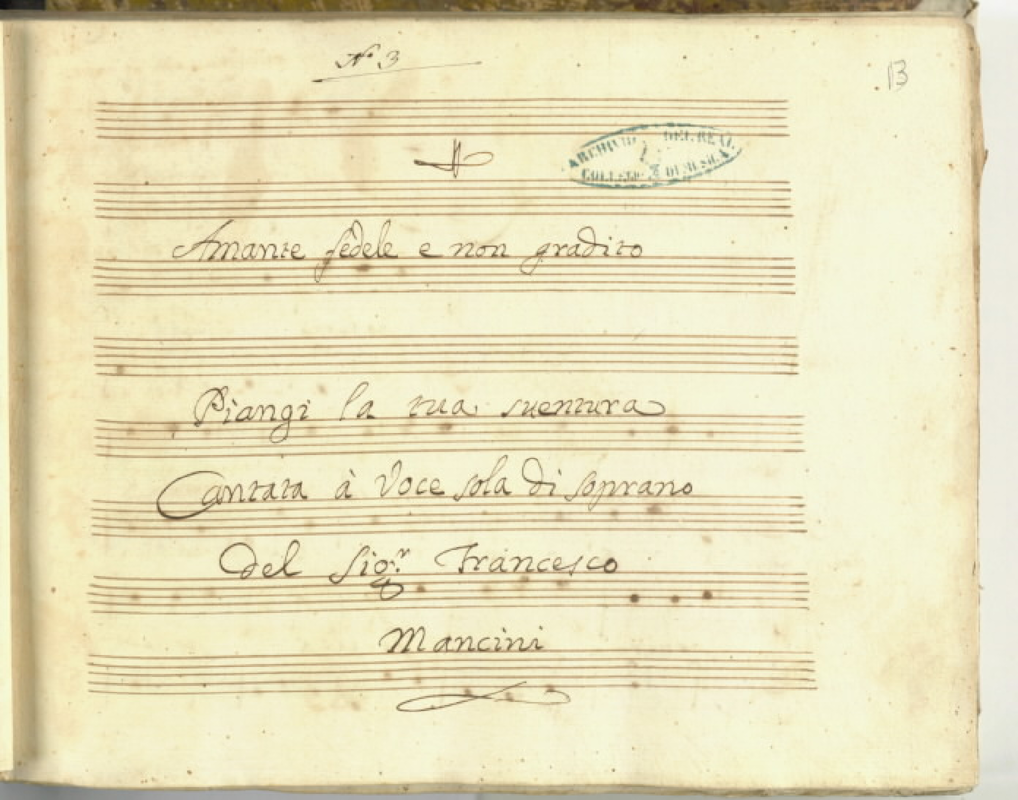 N.º 3
13
ARCHIVIO DEL REAL
COLLEGIO DI MUSICA
Amante fedele e non gradito
Piangi la tua sventura
Cantata à Voce sola di soprano
del Sig.r Francesco
Mancini